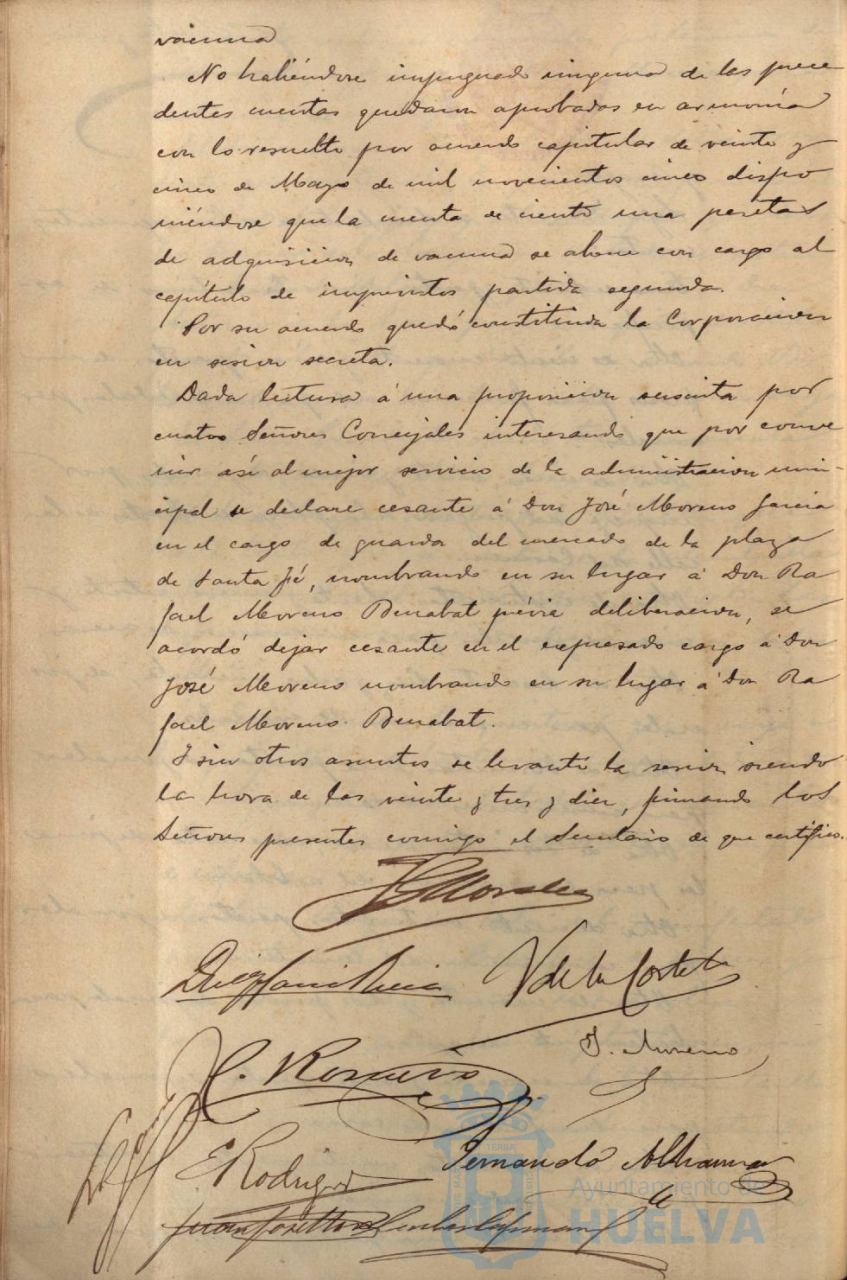 vacuna
No habiéndose impugnado ninguna de las prece
dentes cuentas quedaron aprobadas en armonía
con lo resuelto por acuerdo capitular de veinte y
cinco de Mayo de mil novecientos cinco dispo
niéndose que la cuenta de ciento una pesetas
de adquisicion de vacuna se abone con cargo al
capítulo de imprevistos partida segunda.
Por su acuerdo quedó constituida la Corporacion
en sesion secreta.
Dada lectura á una proposicion suscrita por
cuatro Señores Concejales interesando que por conve
nir así al mejor servicio de la administracion muni-
cipal se declare cesante á Don José Moreno Garcia
en el cargo de guarda del mercado de la plaza
de Santa Fé, nombrando en su lugar á Don Ra
fael Moreno Benabat prévia deliberacion, se
acordó dejar cesante en el expresado cargo á Don
José Moreno nombrando en su lugar á Don Ra
fael Moreno Benabat.
Y sin otros asuntos se levantó la sesion siendo
la hora de las veinte y tres y diez, firmando los
Señores presentes conmigo el Secretario de que certifico.
V de la Corte
J. Moreno
C. Romero
E Rodriguez
Fernando Alhama
Juan José
Ayuntamiento de
HUELVA